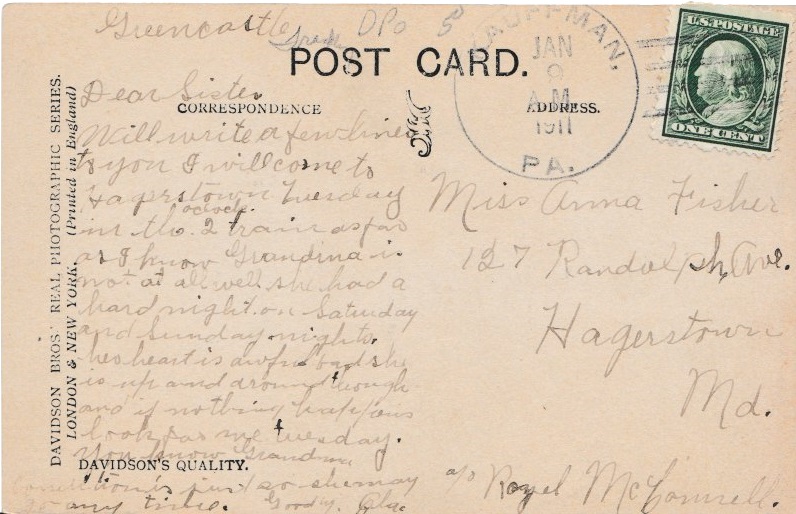 Greencastle
DPO 5
KAUFFMAN.
JAN
9
A.M.
1911
PA.
U.S. POSTAGE
ONE CENT
POST CARD.
CORRESPONDENCE
ADDRESS.
DAVIDSON BROS' REAL PHOTOGRAPHIC SERIES.
LONDON & NEW YORK. (Printed in England)
Dear Sister
Will write a few lines
to you I will come to
Hagerstown Tuesday
oclock
in the 2 train as far
as I know Grandma is
not at all well she had a
hard night on Saturday
and Sunday nights.
hes heart is awful bad she
is up and around though
and if nothing happens
look for me tuesday.
You know Grandma
condition is just so she may
go any time. Goodby.
DAVIDSON'S QUALITY.
Miss Anna Fisher
127 Randolph Ave.
Hagerstown
Md.
c/o Royel McConnell.